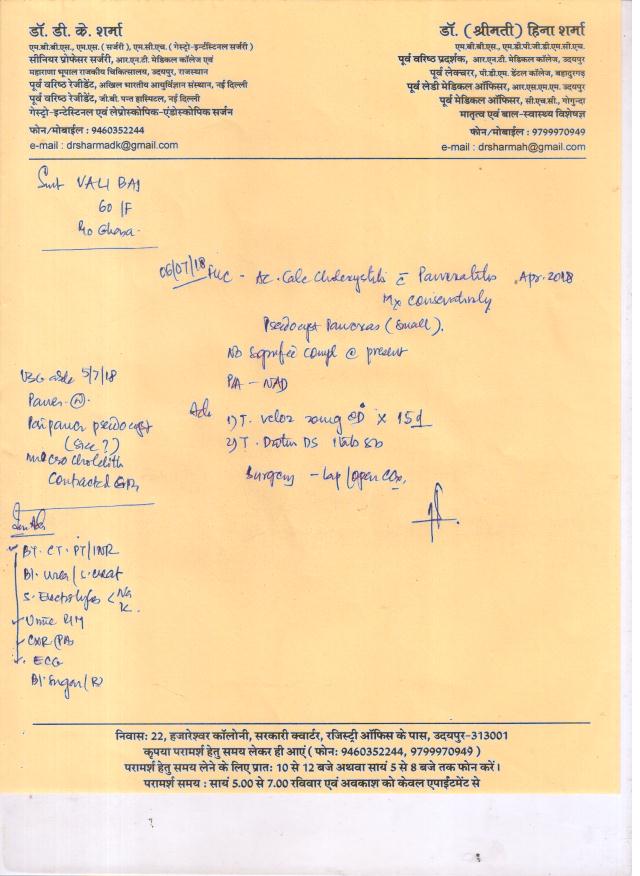 डॉ. डी. के. शर्मा
एम.बी.बी.एस., एम.एस. ( सर्जरी ), एम.सी.एच. ( गेस्ट्रो-इन्टेंस्टिनल सर्जरी )
सीनियर प्रोफेसर सर्जरी, आर.एन.टी. मेडिकल कॉलेज एवं
महाराणा भूपाल राजकीय चिकित्सालय, उदयपुर, राजस्थान
पूर्व वरिष्ठ रेजीडेंट, अखिल भारतीय आयुर्विज्ञान संस्थान, नई दिल्ली
पूर्व वरिष्ठ रेजीडेंट, जी.बी. पन्त हास्पिटल, नई दिल्ली
गेस्ट्रो-इन्टेस्टिनल एवं लेप्रोस्कोपिक-एंडोस्कोपिक सर्जन
फोन/मोबाईल : 9460352244
e-mail : drsharmadk@gmail.com
डॉ. (श्रीमती) हिना शर्मा
एम.बी.बी.एस., एम.डी.पी.जी.डी.एम.सी.एच.
पूर्व वरिष्ठ प्रदर्शक, आर.एन.टी. मेडिकल कॉलेज, उदयपुर
पूर्व लेक्चरर, पी.डी.एम. डेंटल कॉलेज, बहादुरगढ़
पूर्व लेडी मेडिकल ऑफिसर, आर.एस.एम.एम. उदयपुर
पूर्व मेडिकल ऑफिसर, सी.एच.सी., गोगुन्दा
मातृत्व एवं बाल-स्वास्थ्य विशेषज्ञ
फोन/मोबाईल : 9799970949
e-mail : drsharmah@gmail.com
Smt VALI BAI
60 /F
R/o Ghasa
06/07/18 FUC - Ac. Calc Cholecystitis c̄ Pancreatitis Apr. 2018
Mx conservatively
Pseudocyst Pancreas (Small).
No Significant compl @ present
P/A - NAD
Adv
1) T. Veloz 20mg OD x 15d
2) T. DS 1 tab
Surgery - Lap / open CCx.
USG abd 5/7/18
Pancr - (N)
Peripancr pseudocyst
(Size ?)
Micro cholelith
Contracted GB,
BT. CT. PT/INR
Bl. Urea / S. creat
S. Electrolytes < Na
K.
Urine R/M
CXR (PA)
ECG
Bl. Sugar / (R)
निवास: 22, हजारेश्वर कॉलोनी, सरकारी क्वार्टर, रजिस्ट्री ऑफिस के पास, उदयपुर-313001
कृपया परामर्श हेतु समय लेकर ही आएं ( फोन: 9460352244, 9799970949 )
परामर्श हेतु समय लेने के लिए प्रातः 10 से 12 बजे अथवा सायं 5 से 8 बजे तक फोन करें।
परामर्श समय : सायं 5.00 से 7.00 रविवार एवं अवकाश को केवल एपाईंटमेंट से